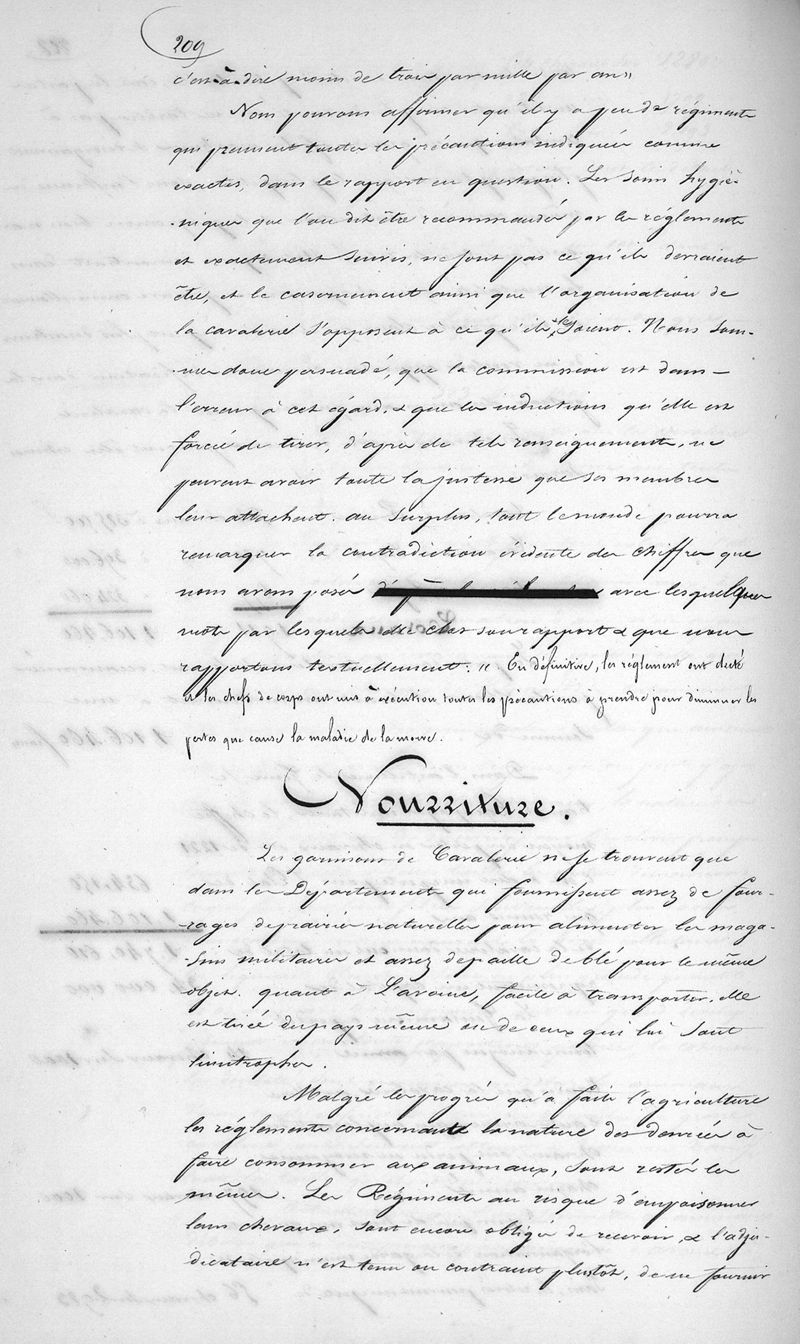 209
c'est-à-dire moins de trois par mille par an»
Nous pouvons affirmer qu'il y a peu de régiments
qui prennent toutes les précautions indiquées comme
exactes, dans le rapport en question. Les soins hygiè-
-niques que l'on dit être recommandés par les règlements
et exactement suivis, ne sont pas ce qu'ils devraient
être, et le casernement ainsi que l'organisation de
la cavalerie s'opposent à ce qu'ils le soient. Nous som-
-mes donc persuadé, que la commission est dans
l'erreur à cet égard, & que les inductions qu'elle est
forcée de tirer, d'après de tels renseignements, ne
peuvent avoir toute la justesse que ses membres
leur attachent. au surplus, tout le monde pourra
remarquer la contradiction évidente des chiffres que
nous avons posés avec les quelques
mots par lesquels elle clos son rapport & que nous
rapportons textuellement. « En définitive, les règlement ont dicté
et les chefs de corps ont mis à exécution toutes les précautions à prendre pour diminuer les
pertes que cause la maladie de la morve.
Nourriture.
Les garnisons de Cavalerie ne se trouvent que
dans les Départements qui fournissent assez de four-
-rages de prairies naturelles pour alimenter les maga-
-sins militaires et assez de paille de blé pour le même
objet. quant à L'avoine, facile à transporter, elle
est tirée du pays même ou de ceux qui lui sont
limitrophes.
Malgré les progrès qu'a fait l'agriculture
les règlements concernant la nature des denrées à
faire consommer aux animaux, sont restés les
mêmes. Les Régiments au risque d'empoisonner
leurs chevaux, sont encore obligés de recevoir, & l'adju-
-dicataire n'est tenu ou contraint plutôt, de ne fournir